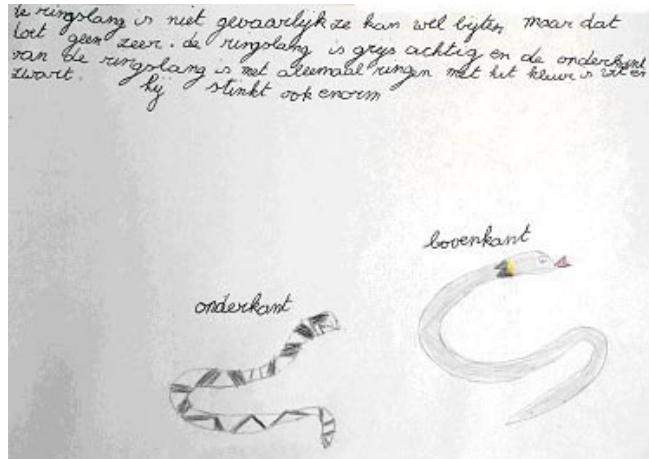 de ringslang is niet gevaarlijk ze kan wel bijten maar dat
doet geen zeer. de ringslang is grys achtig en de onderkant
van de ringslang is met allemaal ringen met het kleur is wit en
zwart. hij stinkt ook enorm
bovenkant
onderkant